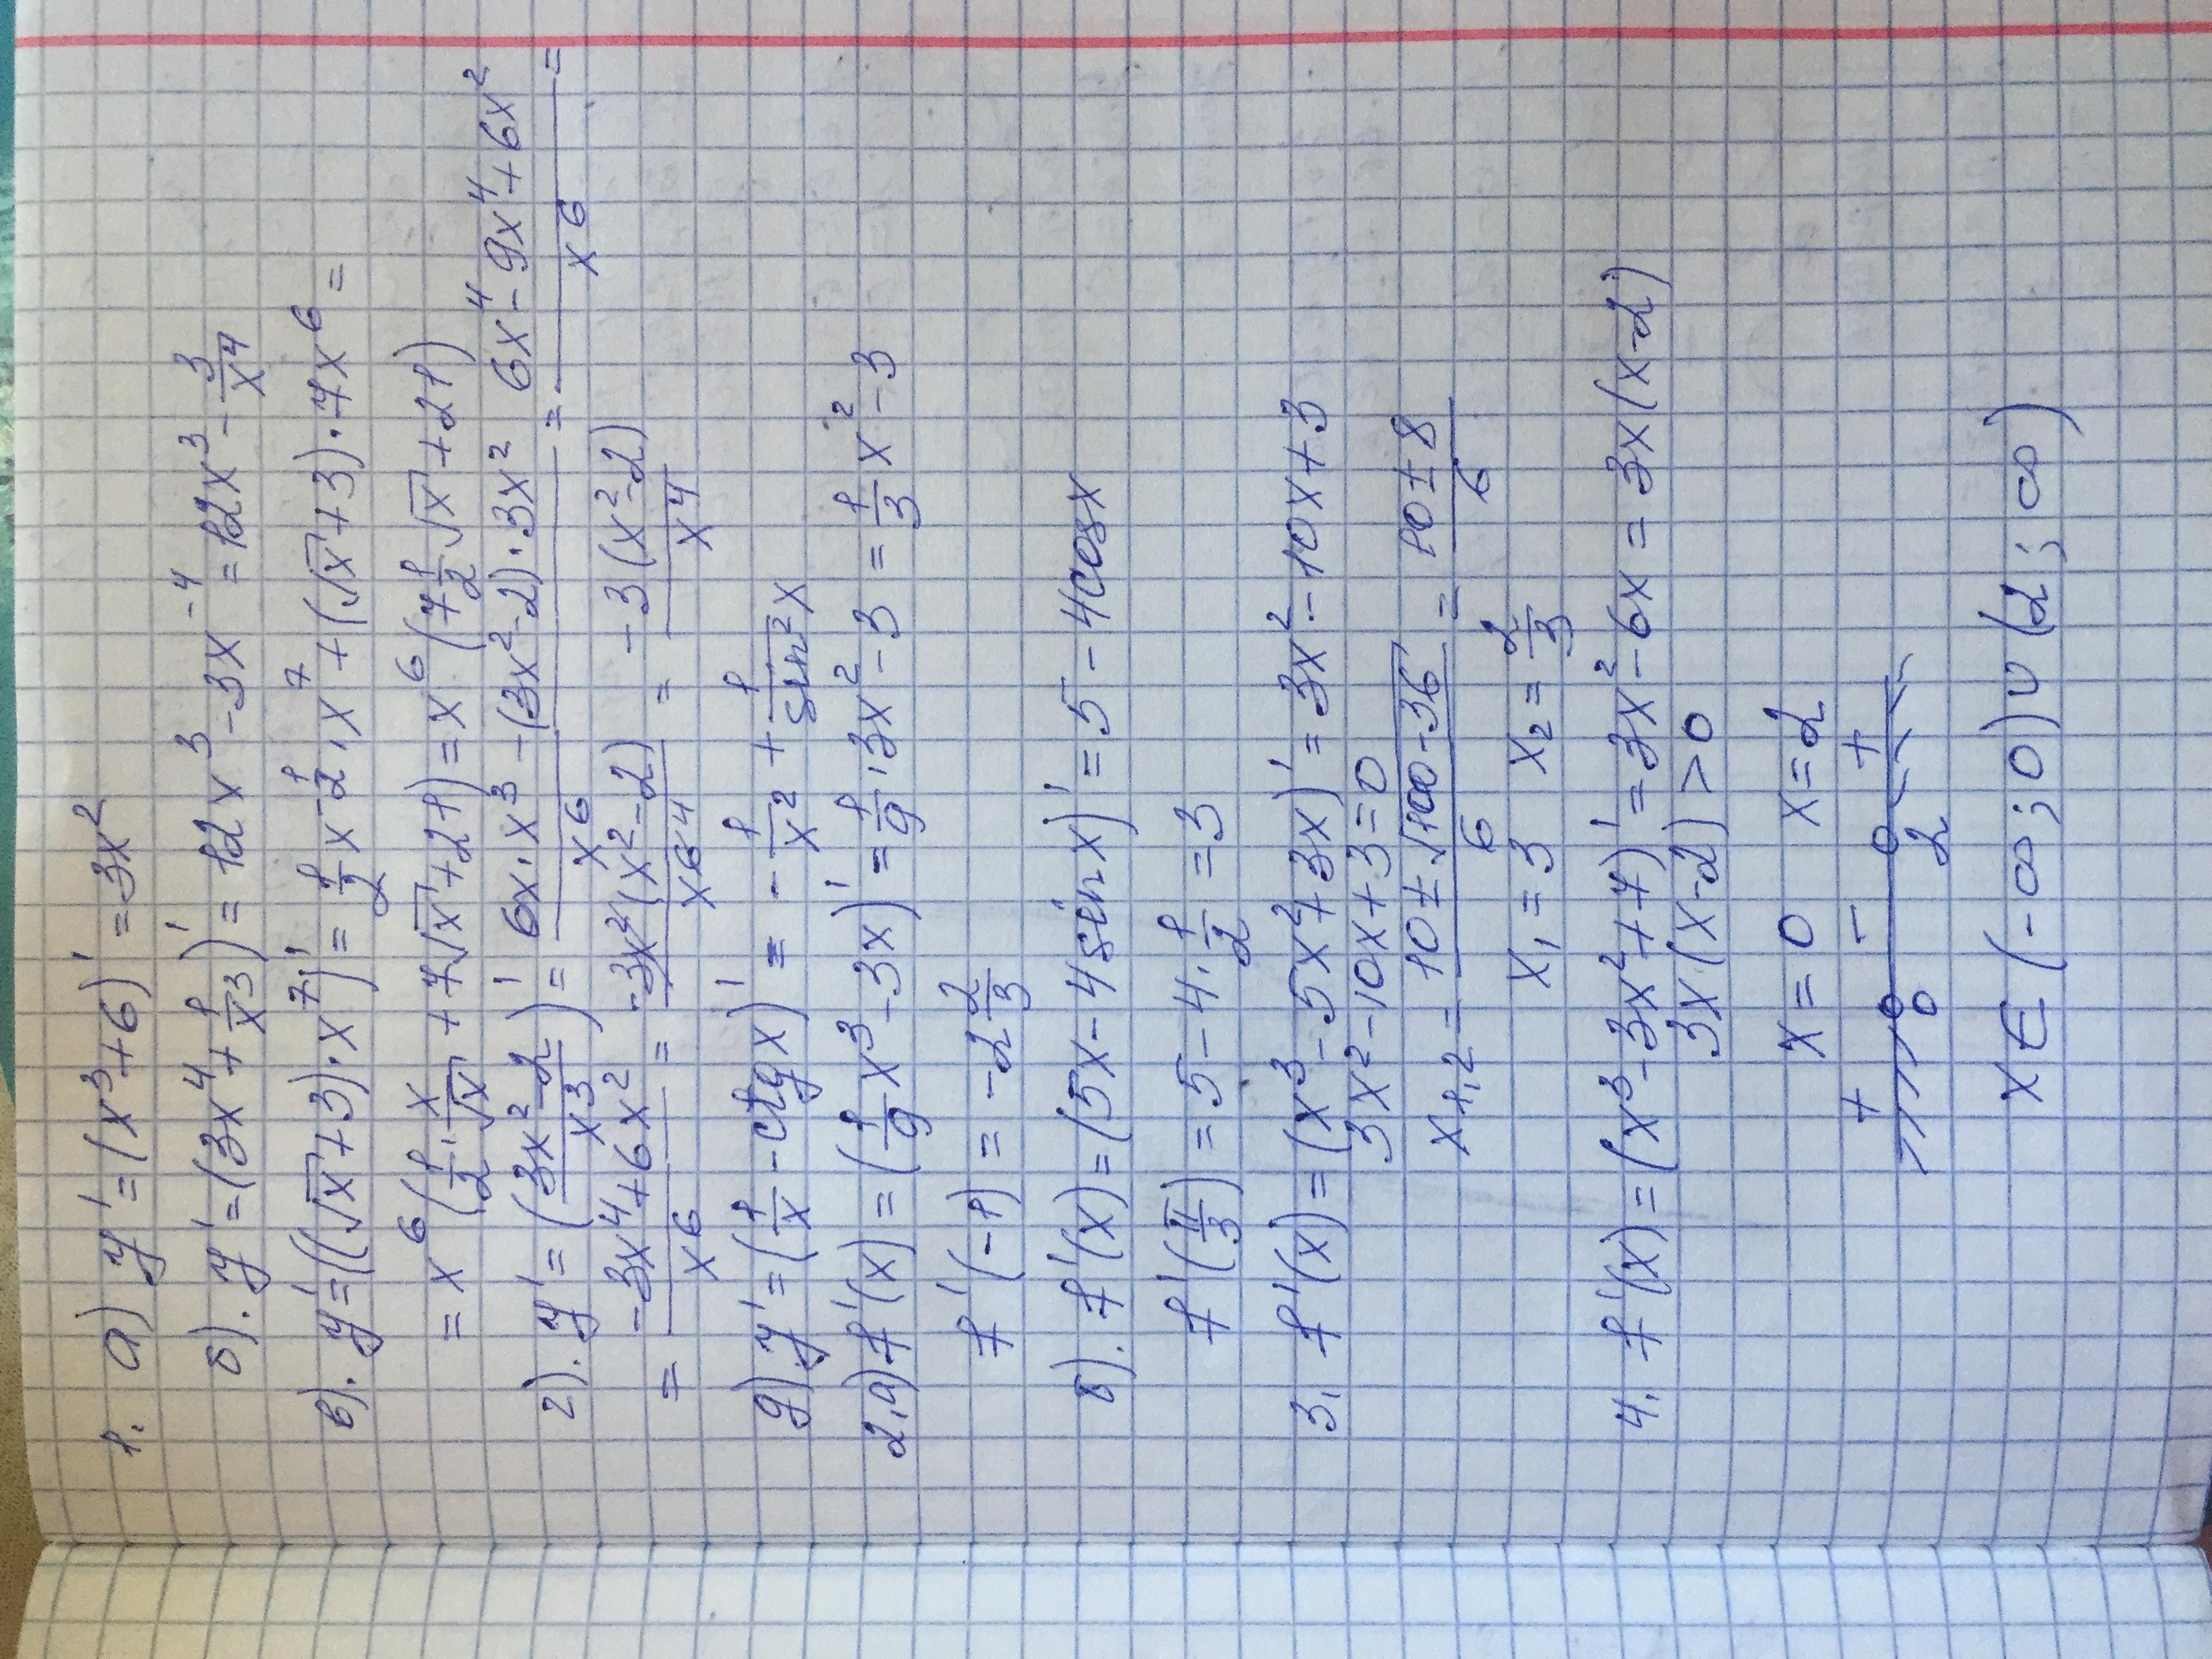 1. а) y' = (x³+6)' = 3x²
б). y' = (3x⁴ + 1/x³)' = 12x³ - 3x⁻⁴ = 12x³ - 3/x⁴
в). y' = ((√x+3)·x⁷)' = 1/2 x^(-1/2)·x⁷ + (√x+3)·7x⁶ =
= x⁶(1/2·x/√x + 7√x + 21) = x⁶(7 1/2 √x + 21)
г). y' = ((3x²-2)/x³)' = (6x·x³ - (3x²-2)·3x²)/x⁶ = (6x⁴ - 9x⁴ + 6x²)/x⁶ =
= (-3x⁴+6x²)/x⁶ = (-3x²(x²-2))/x⁶ ⁴ = (-3(x²-2))/x⁴
д) y' = (1/x - ctg x)' = -1/x² + 1/sin²x
2.а) f'(x) = (1/9 x³ - 3x)' = 1/9·3x² - 3 = 1/3 x² - 3
f'(-1) = -2 2/3
б). f'(x) = (5x - 4sin x)' = 5 - 4cos x
f'(π/3) = 5 - 4·1/2 = 3
3. f'(x) = (x³ - 5x² + 3x)' = 3x² - 10x + 3
3x² - 10x + 3 = 0
x₁,₂ = (10 ± √(100-36))/6 = (10 ± 8)/6
x₁ = 3 x₂ = 2/3
4. f'(x) = (x³ - 3x² + 7)' = 3x² - 6x = 3x(x-2)
3x(x-2) > 0
x = 0 x = 2
+ - +
0 2
x ∈ (-∞; 0) ∪ (2; ∞)